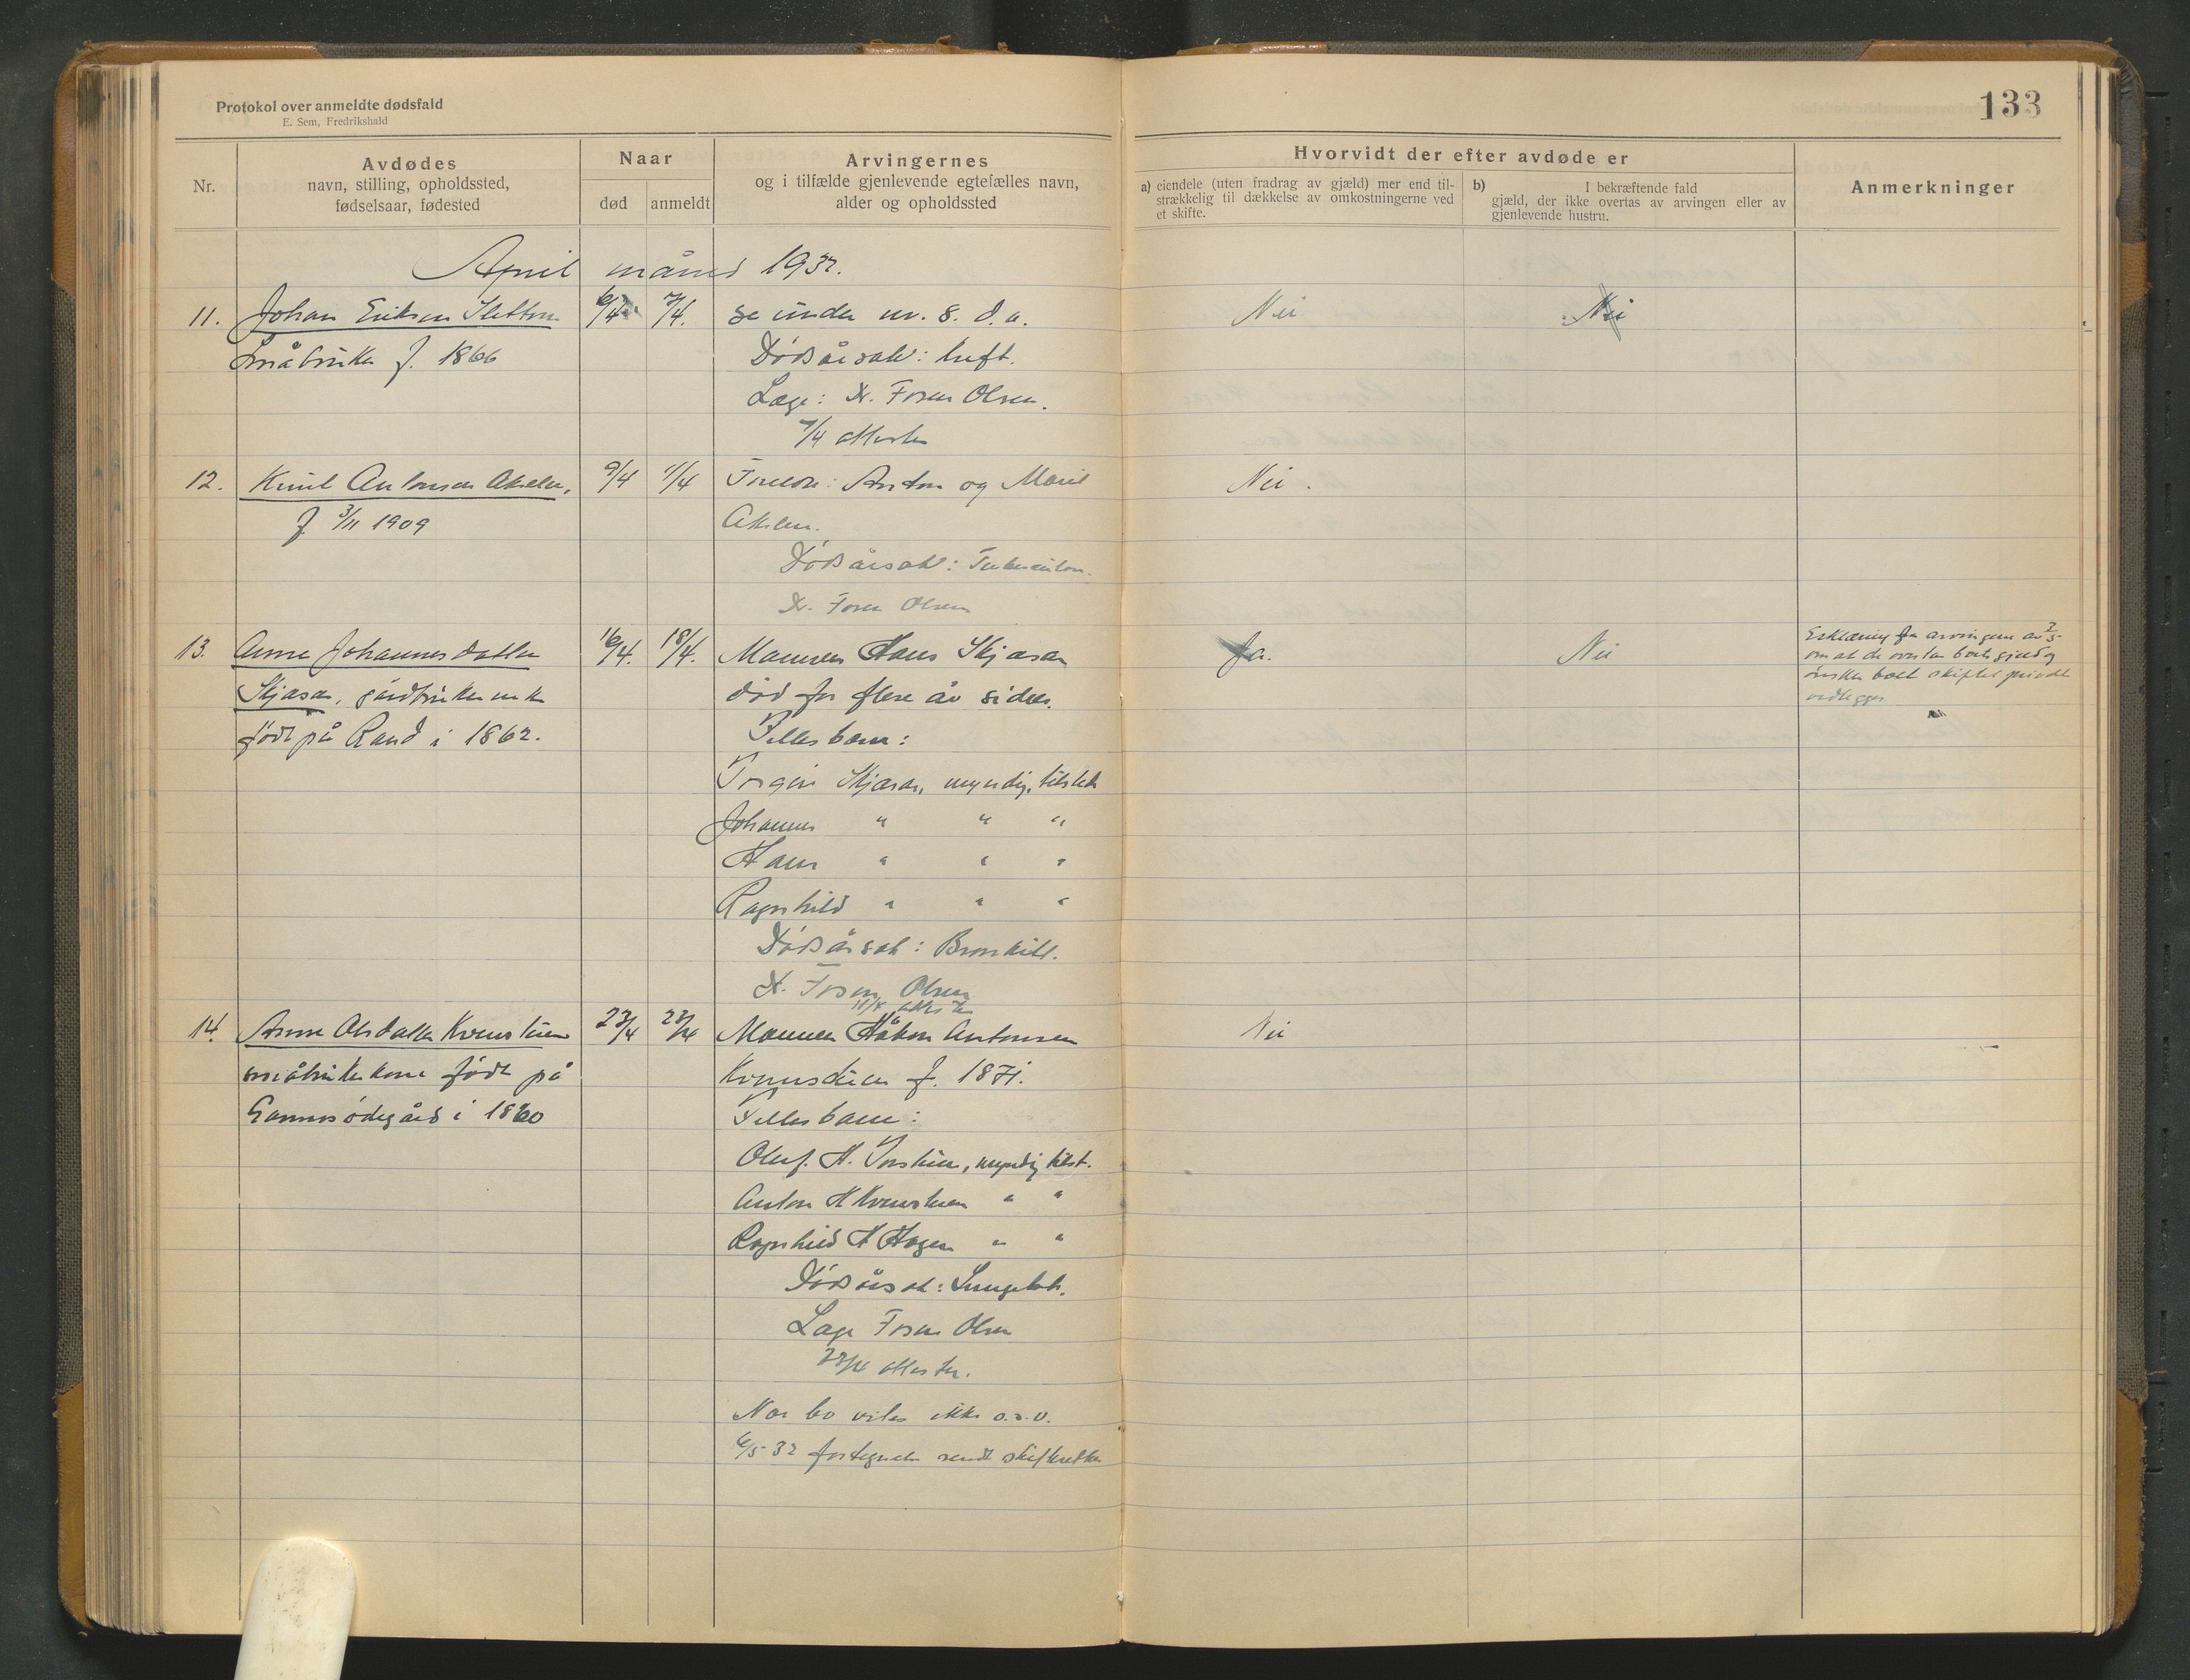 Protokol over anmeldte dødsfald
E. Sem, Fredrikshald
133
Nr.
Avdødes
navn, stilling, opholdssted,
fødselsaar, fødested
Naar
død
anmeldt
Arvingernes
og i tilfælde gjenlevende egtefælles navn,
alder og opholdssted
Hvorvidt der efter avdøde er
a) eiendele (uten fradrag av gjæld) mer end til-
strækkelig til dækkelse av omkostningerne ved
et skifte.
b) I bekræftende fald
gjæld, der ikke overtas av arvingen eller av
gjenlevende hustru.
Anmerkninger
April måned 1932.
11. Johan Eriksen Sletten 6/4 7/4. se under nr. 8. d.a. Nei Nei
Småbruker f. 1866 Dødsårsak:
Læge: Dr. Fosen Olsen.
7/4 attester
12. Knut Antonsen 9/4 11/4 Foreldre: Anton og Marit Nei.
f 3/11 1909
Dødsårsak: Tuberkulose.
Dr. Fosen Olsen
13. Anne Johannesdatter 16/4. 18/4. Mannen Hans Skjåsar Ja. Nei
Skjåsar, gårdbrukerenke død for flere år siden.
født på Rand i 1862. Felles barn:
Erklæring fra arvingene av 2/5
om at de overtar boets gjeld og
ønsker boet skiftet privat
vedlegges
Torgeir Skjåsar, myndig, tilstede
Johannes " " "
Hans " " "
Ragnhild " " "
Dødsårsak: Bronkitt.
Dr. Fosen Olsen
18/4 attester
14. Anne Olsdatter Kvernstuen 23/4 23/4 Mannen Håkon Antonsen Nei
småbrukerkone født på Kvernstuen f. 1871.
i 1860 Felles barn:
Oluf. H. , myndig tilst.
Anton H Kvernstuen " "
Ragnhild H Hagen " "
Dødsårsak:
Læge Fosen Olsen
23/4 attester.
Noe bo viles ikke o.s.v.
6/5-32 fortegnelse sendt skifteretten